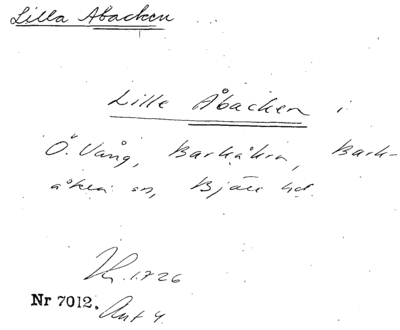 Lilla Åbacken
Lille Åbacken i
Ö. Vång, Barkåkra, Bark-
åkra sn, Bjäre hd.
1926
Nr 7012.
Ant 4.